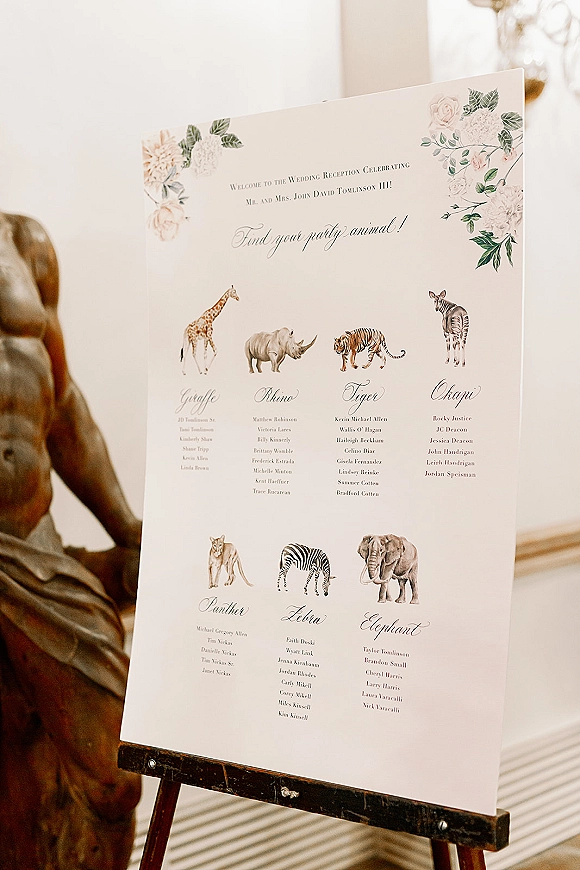 Welcome to the Wedding Reception Celebrating
Mr. and Mrs. John David Tomlinson III!
Find your party animal!
Giraffe
JD Tomlinson Sr.
Tami Tomlinson
Kimberly Shaw
Shane Tripp
Kevin Allen
Linda Brown
Rhino
Matthew Robinson
Victoria Lares
Billy Kinnerly
Brittany Womble
Frederick Estrada
Michelle Minton
Kent Hueffner
Trace Bucarean
Tiger
Kevin Michael Allen
Wallis O'Hagan
Haileigh Beckham
Celino Diaz
Gisela Fernandez
Lindsey Reinke
Summer Cotten
Bradford Cotten
Okapi
Rocky Justice
JC Deacon
Jessica Deacon
John Handrigan
Leigh Handrigan
Jordan Speisman
Panther
Michael Gregory Allen
Tim Nickas
Danielle Nickas
Tim Nickas Sr.
Janet Nickas
Zebra
Faith Duski
Wyatt Link
Jenna Kirenbaum
Jordan Rhodes
Carly Mikell
Corey Mikell
Miles Kinsell
Kim Kinsell
Elephant
Taylor Tomlinson
Brandon Small
Cheryl Harris
Larry Harris
Laura Varacalli
Nick Varacalli